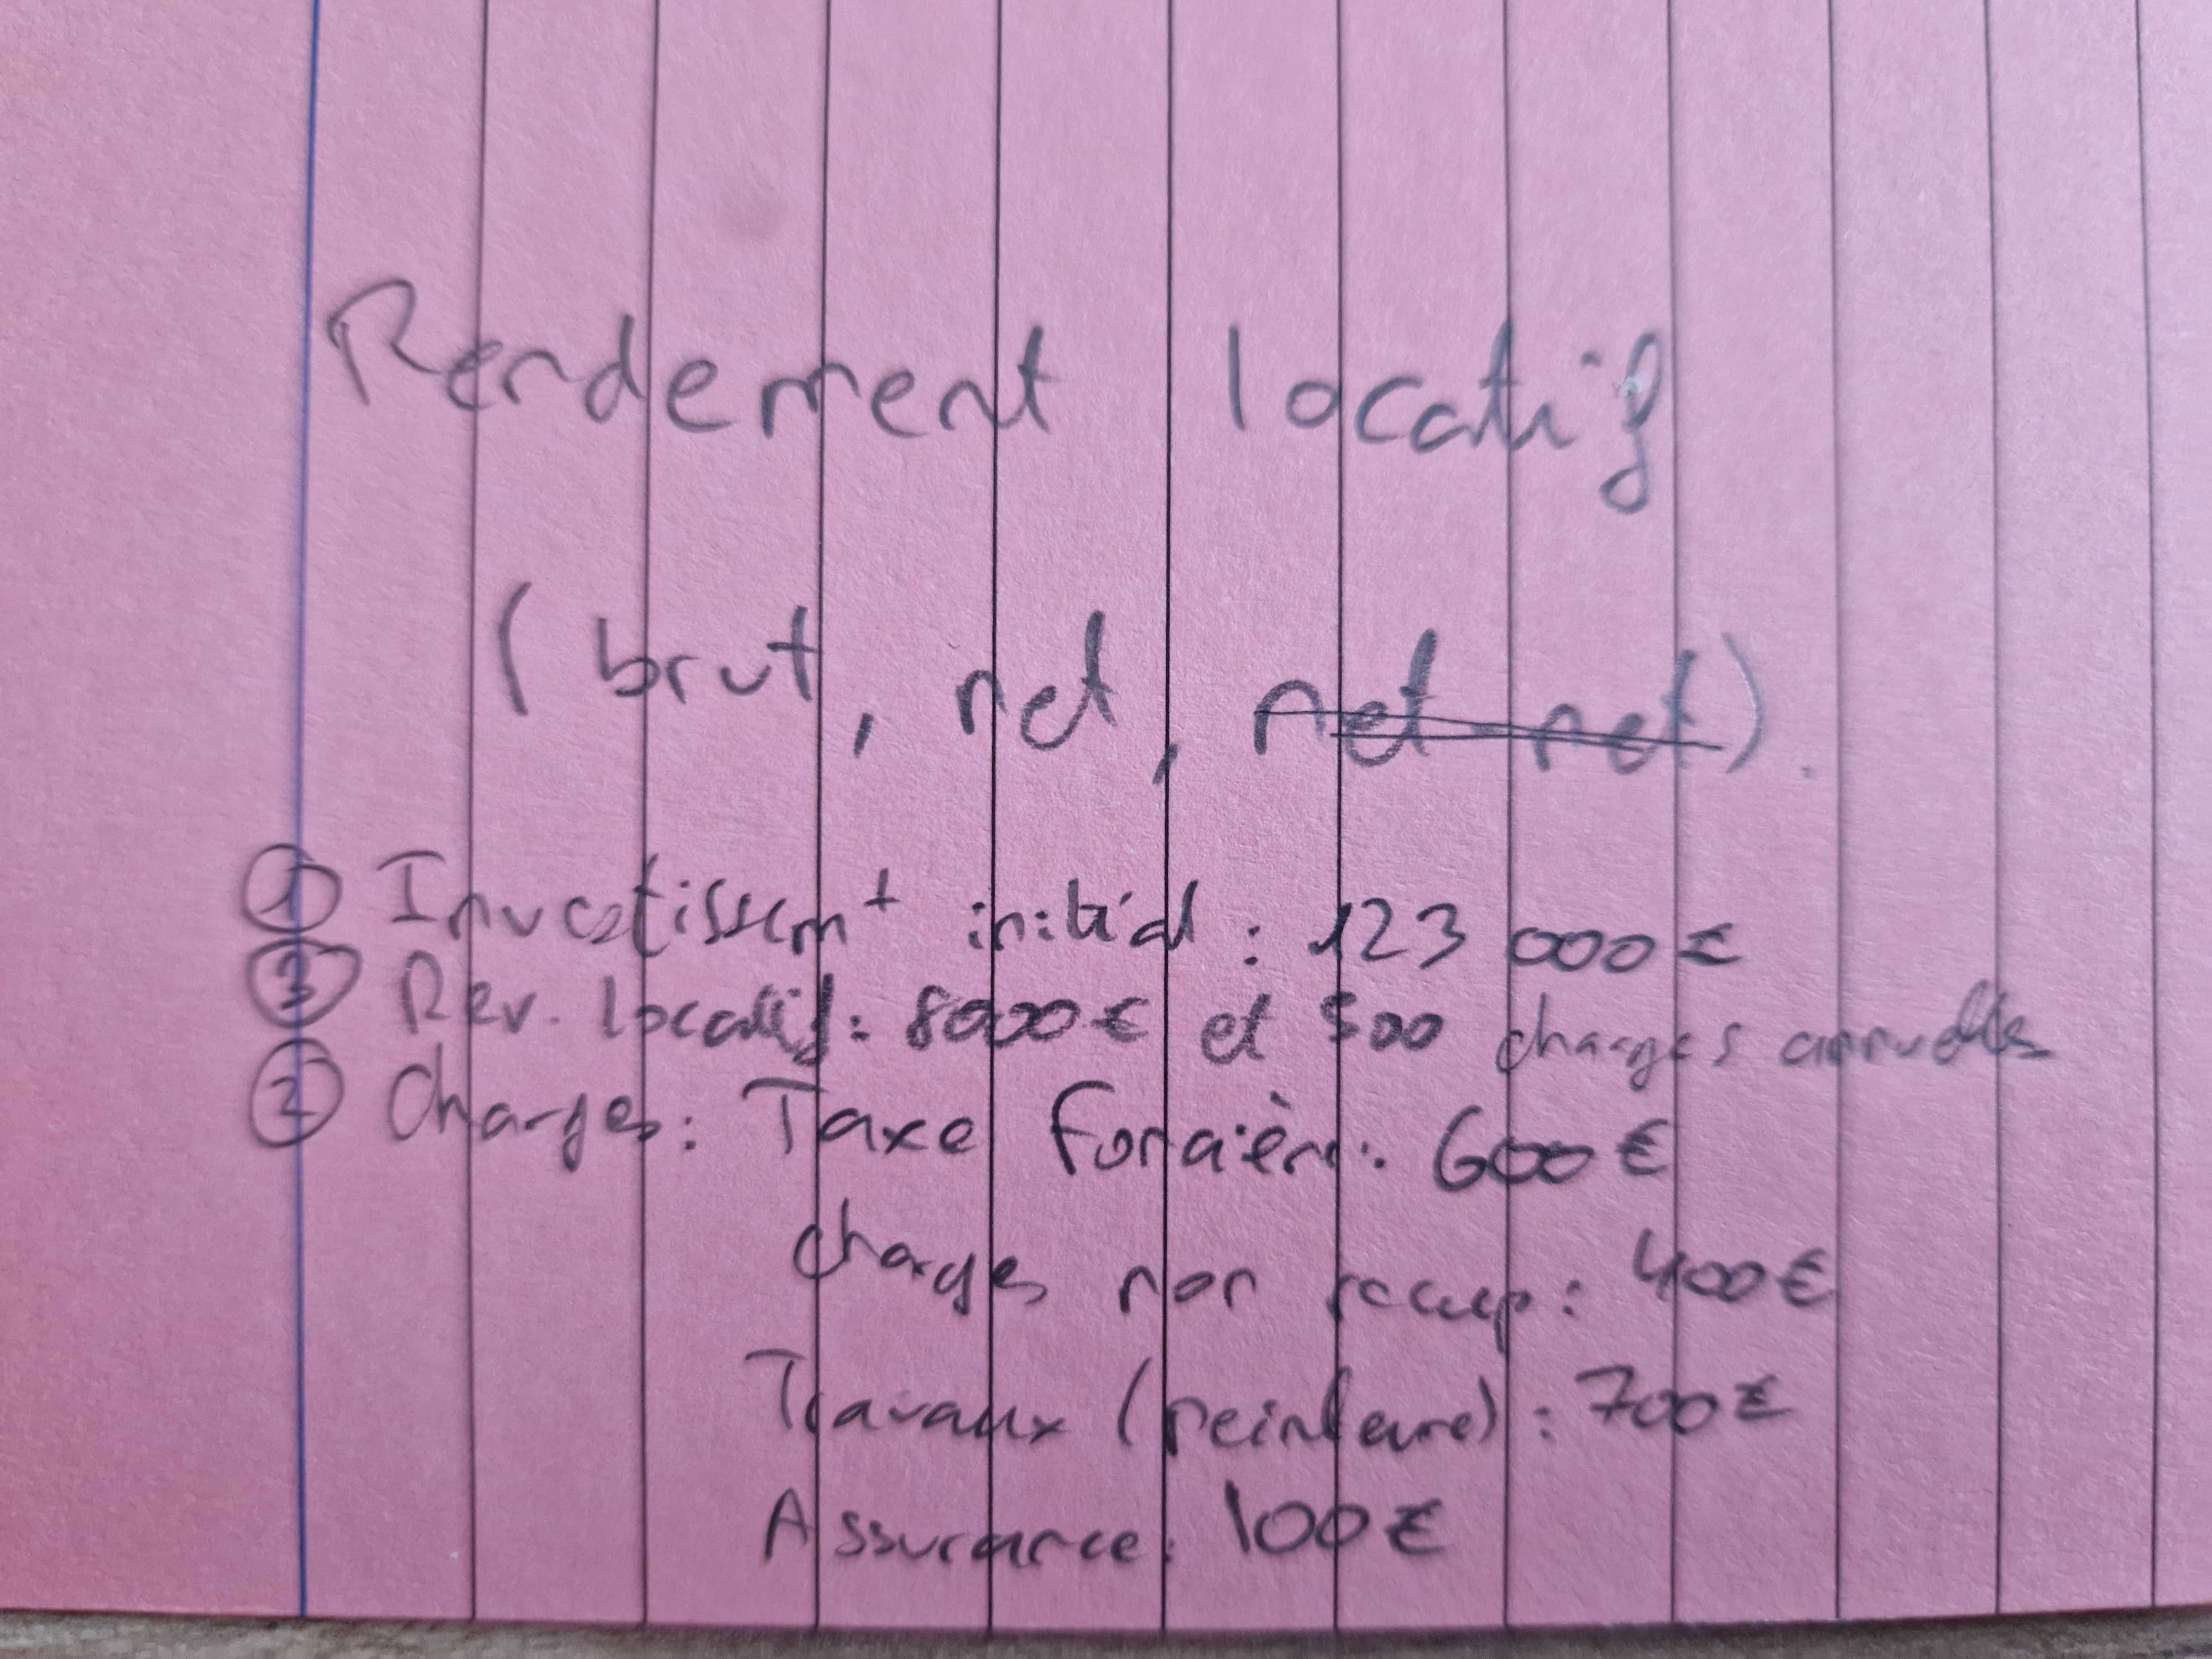 Rendement locatif
(brut, net, net net).
① Investissemt initial : 123 000 €
③ Rev. locatif : 8000 € et 500 charges annuelles
② Charges : Taxe Foncière : 600 €
charges non récup : 400 €
Travaux (peinture) : 700 €
Assurance : 100 €